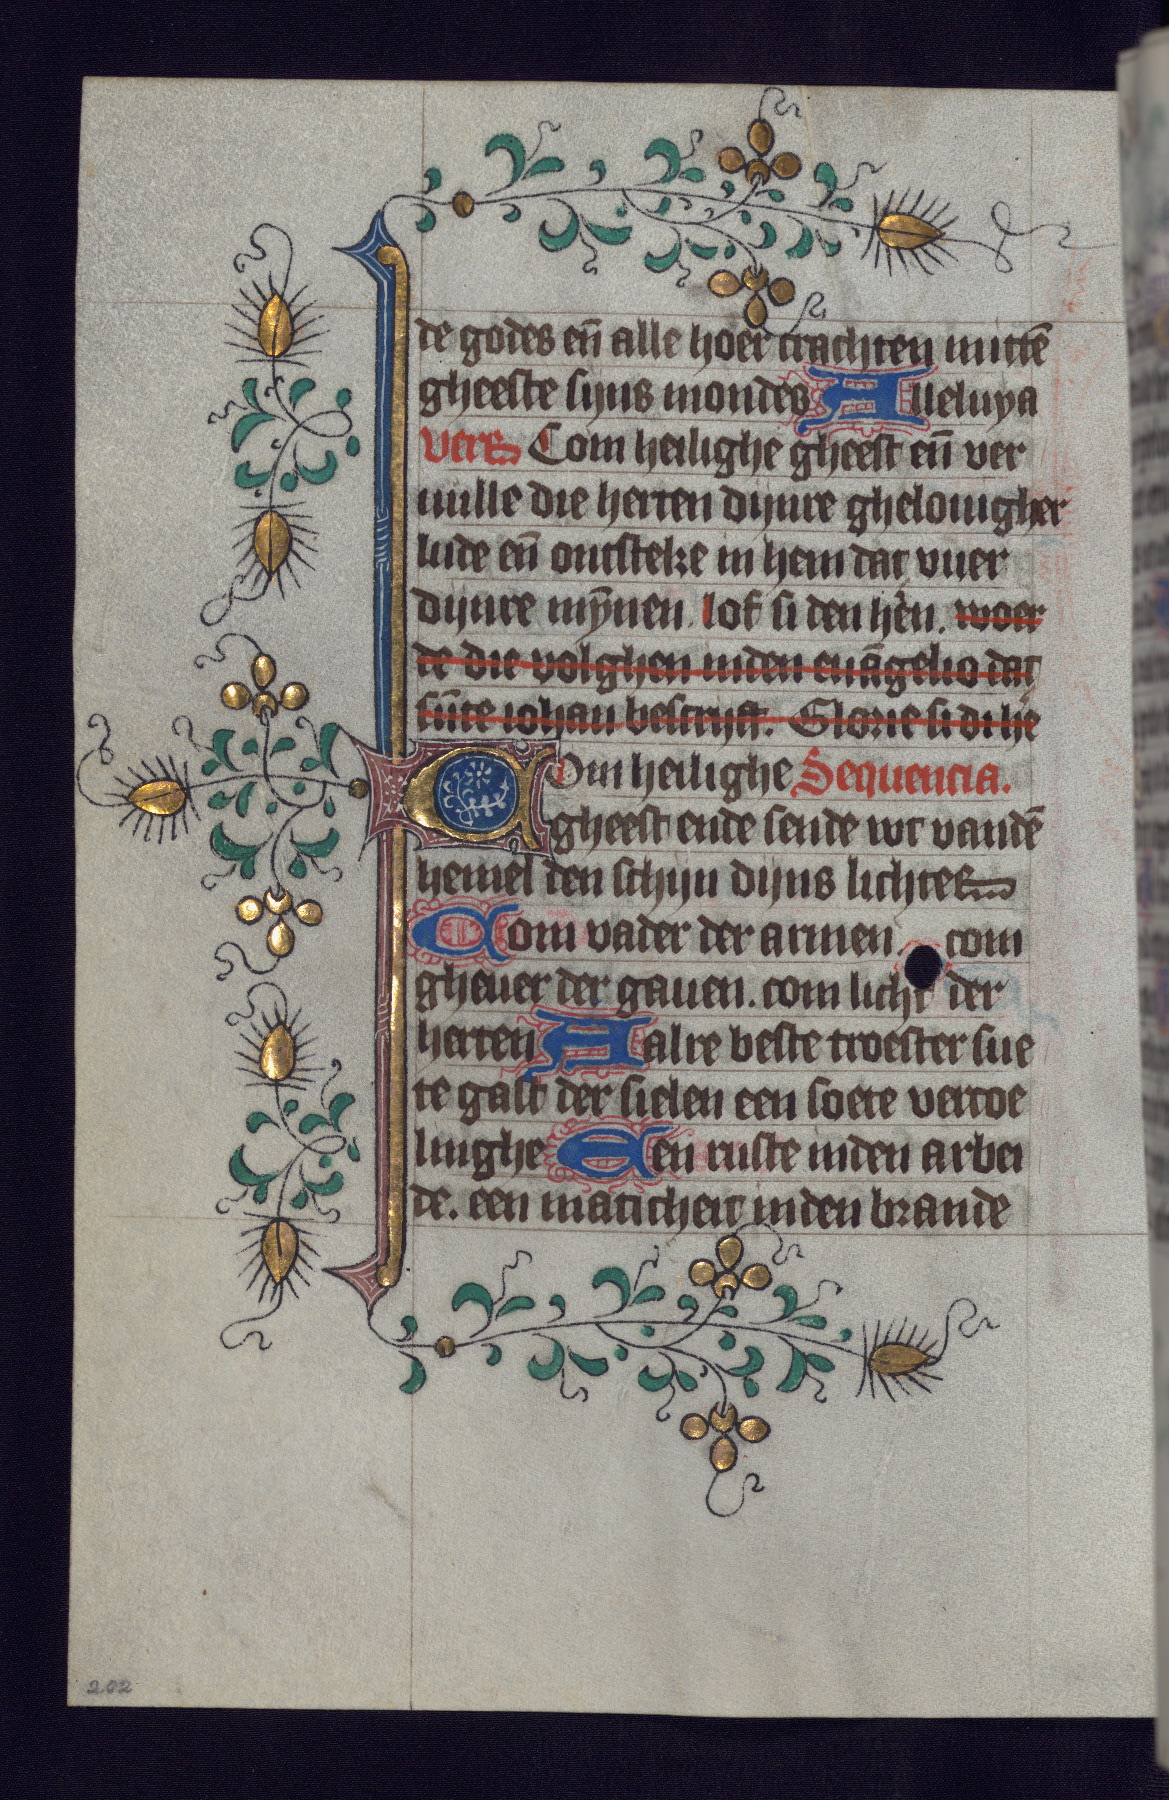 de godes en̄ alle hoer crachten mittē
gheeste sijns mondes Alleluya
Vers Com heilighe gheest en̄ ver
uulle die herten dijnre ghelouigher
lude en̄ ontsteke in hem dat vuer
dijnre mȳnen. lof si den hēn. woer
de die volghen inden euāgelio dat
sūte iohan bescrijft. Glorie si di hē
Com heilighe Sequencia.
gheest ende sende wt vandē
hemel den schijn dijns lichtes
Com vader der armen com
gheuer der gauen. com licht der
herten Aalre beste troester sue
te gast der sielen een soete vercoe
linghe Een ruste inden arbei
de. een maticheit inden brande
202